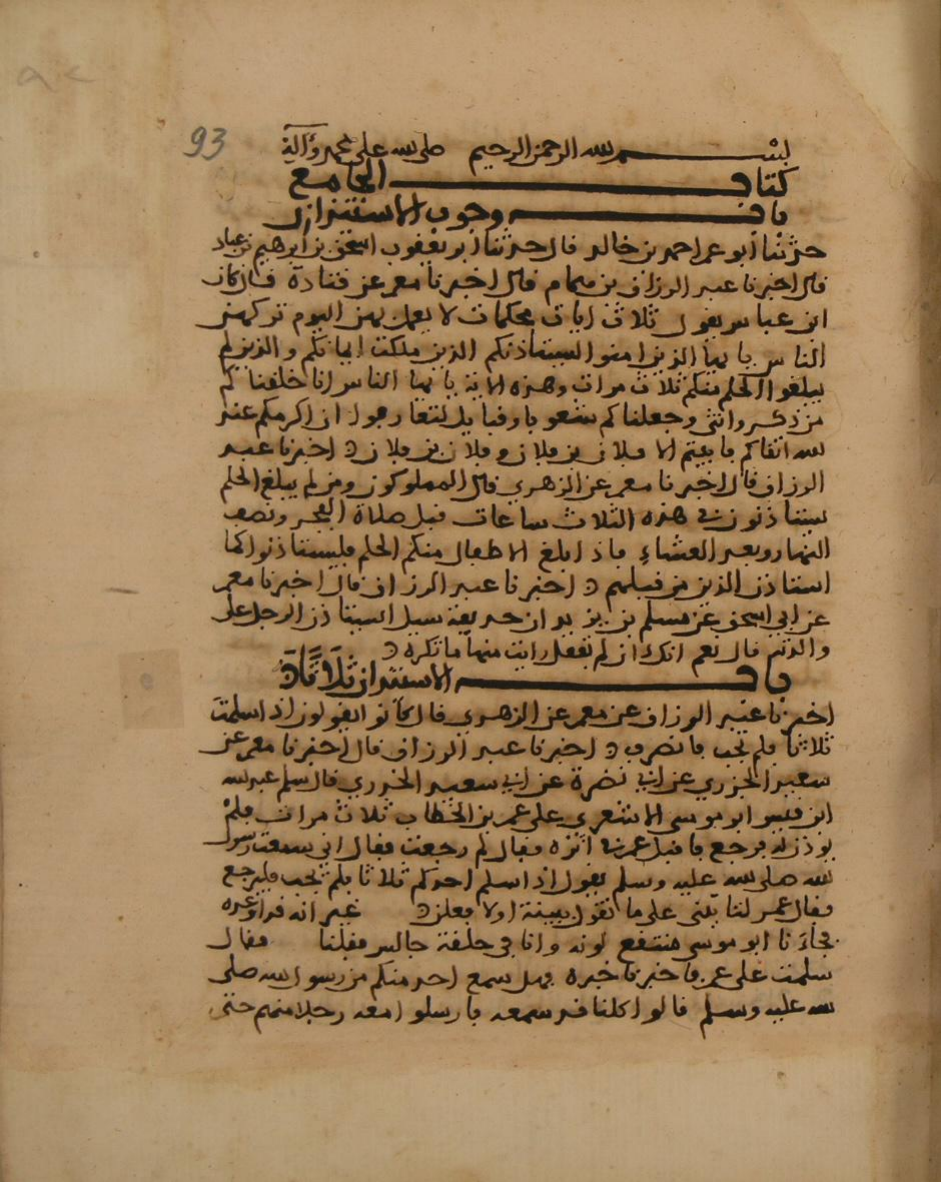 93
بسم الله الرحمن الرحيم صلى الله على محمد وآله
كتاب الجامع
باب وجوب الاستئذان
حدثنا أبو عمر احمد بن خالد قال حدثنا أبو يعقوب اسحق بن ابرهيم بن عباد
قال اخبرنا عبد الرزاق بن همام قال اخبرنا معمر عن قتادة قال كان
ابن عباس يقول ثلاث ايات محكمات لا يعمل بهن اليوم تركهن
الناس يا يها الذين امنوا ليستاذنكم الذين ملكت ايمانكم والذين لم
يبلغوا الحلم منكم ثلاث مرات وهذه الاية يا يها الناس انا خلقناكم
من ذكر وانثى وجعلناكم شعوبا وقبايل لتعارفوا ان اكرمكم عند
الله اتقاكم فابيتم الا فلان بن فلان وفلان بن فلان اخبرنا عبد
الرزاق قال اخبرنا معمر عن الزهري قال المملوكون ومن لم يبلغ الحلم
يستاذنون في هذه الثلاث ساعات قبل صلاة الفجر ونصف
النهار وبعد العشاء فاذا بلغ الاطفال منكم الحلم فليستاذنوا كما
استاذن الذين من قبلهم اخبرنا عبد الرزاق قال اخبرنا معمر
عن ابي اسحق عن مسلم بن يزيد ان حذيفة سيل ايستاذن الرجل على
والدته قال نعم انك ان لم تفعل رايت منها ما تكره
باب الاستئذان ثلاثا
اخبرنا عبد الرزاق عن معمر عن الزهري قال كانوا يقولون اذا سلمت
ثلاثا فلم تجب فانصرف اخبرنا عبد الرزاق قال اخبرنا معمر عن
سعيد الجزري عن ابي نضرة عن ابي سعيد الخدري قال سلم عبد الله
ابن قيس ابو موسى الاشعري على عمر بن الخطاب ثلاث مرات فلم
يوذن له فرجع فاقبل عمر في اثره فقال لم رجعت فقال اني سمعت رسول
الله صلى الله عليه وسلم يقول اذا سلم احدكم ثلاثا فلم يجب فليرجع
فقال عمر لتاتيني على ما تقول ببينة اولا فعلن غير انه قد اوعده
فجاءنا ابو موسى منتقع لونه وانا في حلقة جالس فقلنا فقال
سلمت على عمر فاخبرنا خبره فهل سمع احد منكم من رسول الله صلى
الله عليه وسلم قالوا كلنا قد سمعه فارسلوا معه رجلا منهم حتى